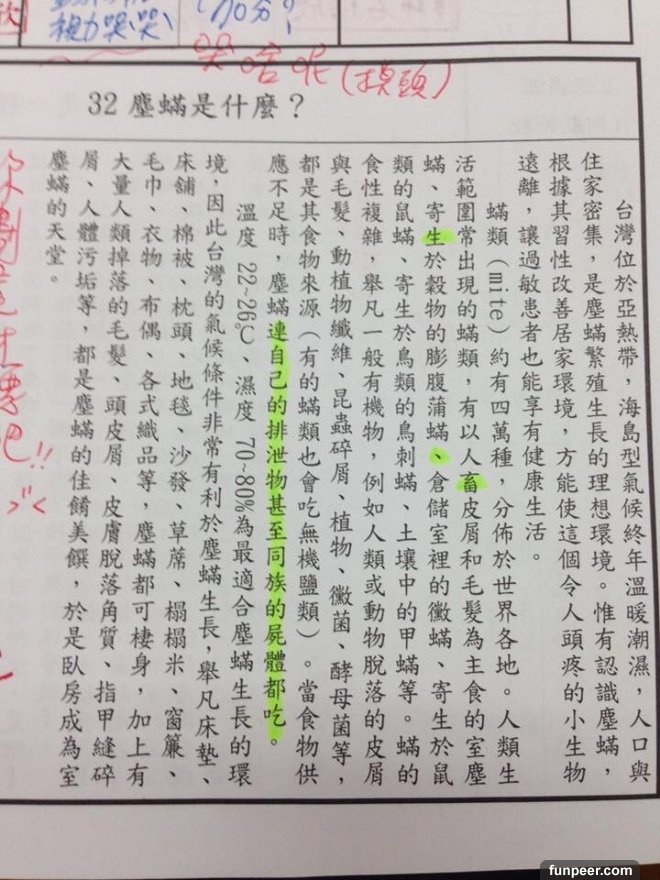 哭啥呢(摸頭)
32 塵蟎是什麼？
台灣位於亞熱帶，海島型氣候終年溫暖潮濕，人口與
住家密集，是塵蟎繁殖生長的理想環境。惟有認識塵蟎，
根據其習性改善居家環境，方能使這個令人頭疼的小生物
遠離，讓過敏患者也能享有健康生活。
蟎類（mite）約有四萬種，分佈於世界各地。人類生
活範圍常出現的蟎類，有以人畜皮屑和毛髮為主食的室塵
蟎、寄生於穀物的膨腹蒲蟎、倉儲室裡的黴蟎、寄生於鼠
類的鼠蟎、寄生於鳥類的鳥刺蟎、土壤中的甲蟎等。蟎的
食性複雜，舉凡一般有機物，例如人類或動物脫落的皮屑
與毛髮、動植物纖維、昆蟲碎屑、植物、黴菌、酵母菌等，
都是其食物來源（有的蟎類也會吃無機鹽類）。當食物供
應不足時，塵蟎連自己的排泄物甚至同族的屍體都吃。
溫度 22~26℃、濕度 70~80%為最適合塵蟎生長的環
境，因此台灣的氣候條件非常有利於塵蟎生長，舉凡床墊、
床舖、棉被、枕頭、地毯、沙發、草蓆、榻榻米、窗簾、
毛巾、衣物、布偶、各式織品等，塵蟎都可棲身，加上有
大量人類掉落的毛髮、頭皮屑、皮膚脫落角質、指甲縫碎
屑、人體污垢等，都是塵蟎的佳餚美饌，於是臥房成為室
塵蟎的天堂。
funpeer.com